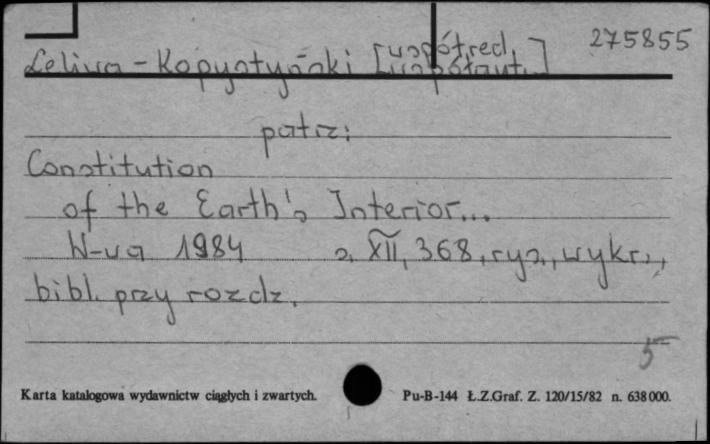 275855
Leliwa-Kopystyński [współred., współaut.]
patrz:
Constitution
of the Earth's Interior...
W-wa 1984 s. XII, 368, rys., wykr.,
bibl. przy rozdz.
5
Karta katalogowa wydawnictw ciągłych i zwartych. Pu-B-144 Ł.Z.Graf. Z. 120/15/82 n. 638000.